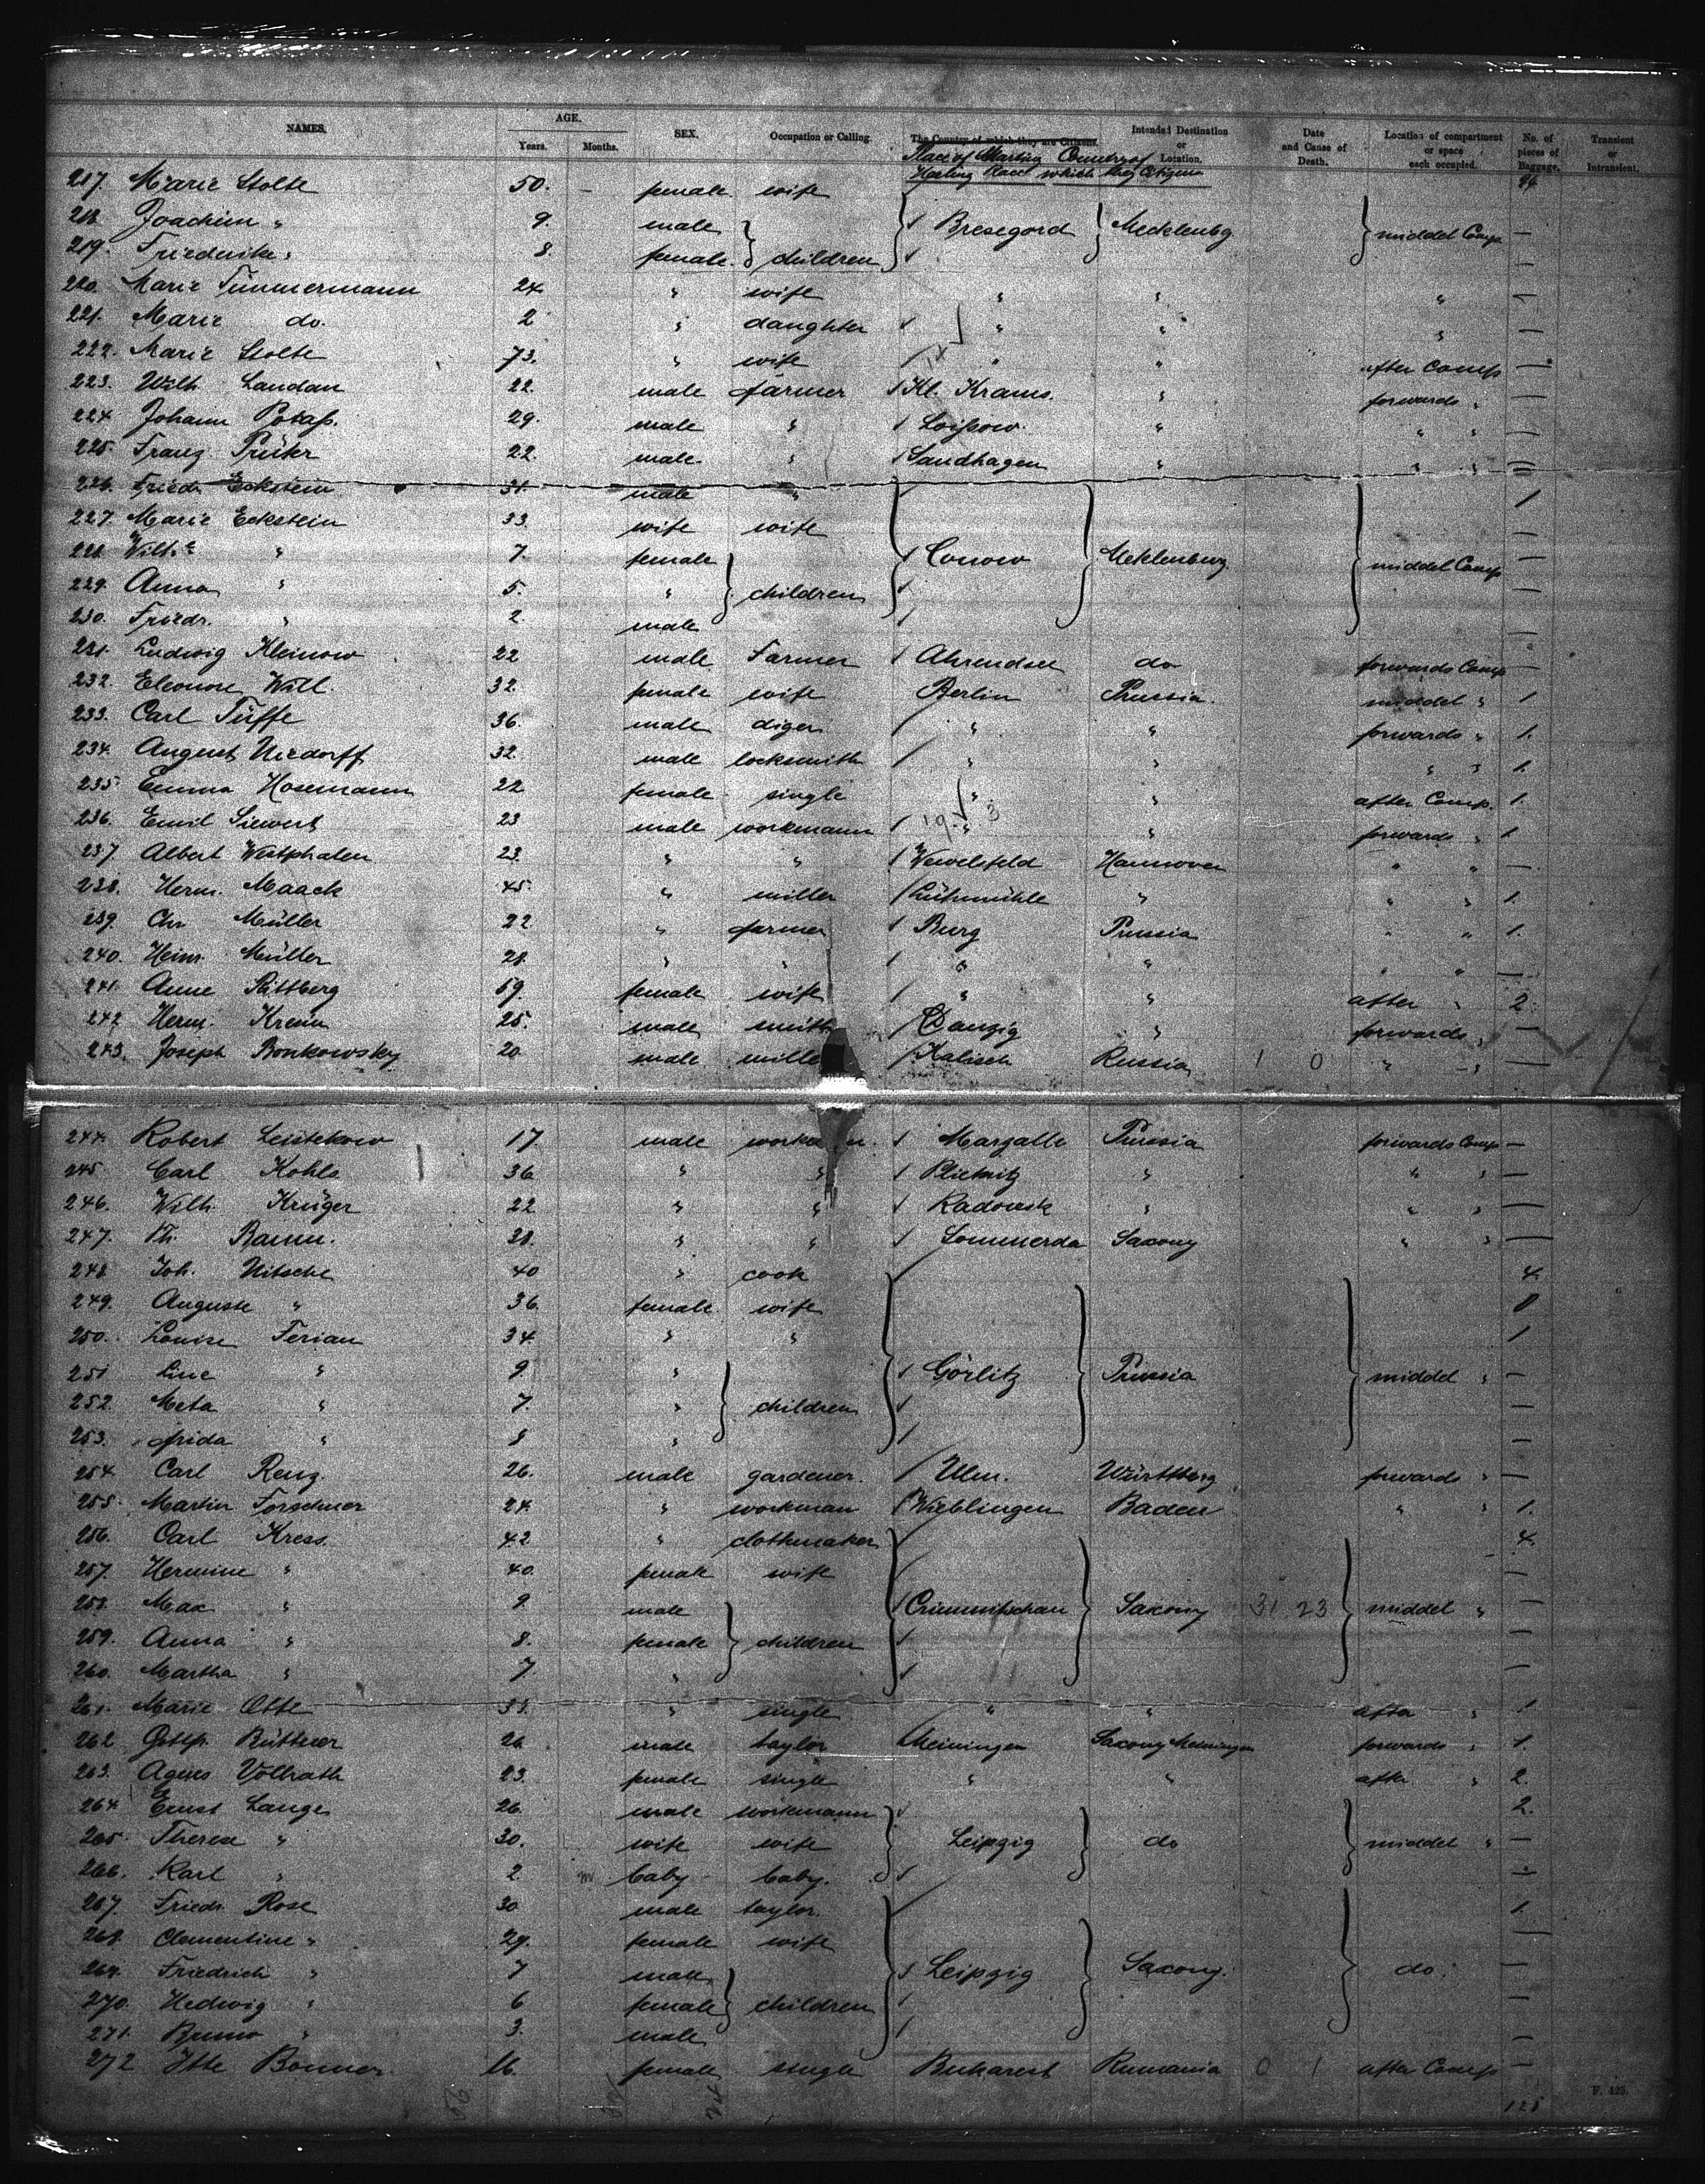 NAMES. AGE. Years. Months. SEX. Occupation or Calling. The Country of which they are Citizens. Intended Destination or Location. Date and Cause of Death. Location of compartment or space each occupied. No. of pieces of Baggage. Transient or Intransient.
Place of Starting Country of
which they Citizens
217. Marie Stolte 50. — female wife
218. Joachim " 9. male Bresegord Mecklenbg middel Comp. —
219. Friederike " 8. female children —
220. Marie Timmermann 24 " wife " " " —
221. Marie do. 2 " daughter " " " —
222. Marie Stolte 73. " wife " " after Comp —
223. Wilh. Landau 22. male farmer Kl. Krams. " forwards " —
224. Johann Potaß. 29. male " Loißow " " " —
225. Franz Prüter 22. male " Sandhagen " " " —
226. Friedr. Eckstein 31. male " 1
227. Marie Eckstein 33. wife wife —
228. Wilh.e " 7. female Conow Meklenburg middel Comp —
229. Anna " 5. " children —
230. Friedr. " 2. male —
231. Ludwig Kleinow 22 male Farmer Ahrendsee do forwards Comp —
232. Eleonore Will. 32. female wife Berlin Prussia. middel " 1
233. Carl Tüffe 36. male diger " " forwards " 1.
234. August Niedorff 32. male locksmith " " " " 1.
235. Emma Hosemann 22 female single " " after Comp. 1.
236. Emil Siewert 23 male workmann " " forwards " 1
237. Albert Westphalen 23. " " Wewelsfeld Hannover " " —
238. Herm. Maack 45. " miller Lühmühle " " " 1.
239. Chr. Müller 22 " farmer Burg Prussia " " 1.
240. Heinr. Müller 28. " " " " " " —
241. Anne Rittberg 59. female wife " " after " 2.
242. Herm. Kremin 25. male smith Danzig " forwards " —
243. Joseph Bonkowsky 20. male mille Kalisch Russia 1 0 " " —
244. Robert Leistekow 17. male worka n. Margalle Prussia forwards Comp —
245. Carl Kohls 36 " " Plietnitz " " " —
246. Wilh. Krüger 22 " " Radowsk " " " —
247. Th. Ramm. 28. " " Sommerda Saxony " " —
248. Joh. Nitsche 40 " cook 4.
249. Auguste " 36. female wife
250. Louise Ferian 34. " " 1
251 Line " 9. " Görlitz Prussia middel " —
252. Meta " 7. " children —
253. Frida " 8 " —
254. Carl Renz. 26. male gardener. Ulm. Württbrg forwards " —
255. Martin Forschner 24. " workman Wieblingen Baden " " 1.
256. Carl Kress. 42 " clothmaker 4.
257. Hermine " 40. female wife —
258. Max " 9. male Crimmitschau Saxony 31 23 middel " —
259. Anna " 8. female children —
260. Martha " 7. " —
261. Marie Otte 33. " single " " after " 1
262 Gottfr. Büttner 26. male taylor Meiningen Saxony Meiningen forwards " 1.
263. Agnes Vollrath 23. female single " " after " 2.
264 Ernst Lange 26. male workmann 2.
265. Therese " 30. wife wife Leipzig do middel " —
266. Karl " 2. m baby baby. —
267. Friedr. Rose 30 male taylor. 1.
268. Clementine " 29. female wife —
269. Friedrich " 7 male Leipzig Saxony. do. —
270. Hedwig " 6 female children —
271. Bruno " 3. male —
272 Itte Bonner. 16. female single Bukarest Rumania 0 1 after Comp —
F. 425.
125